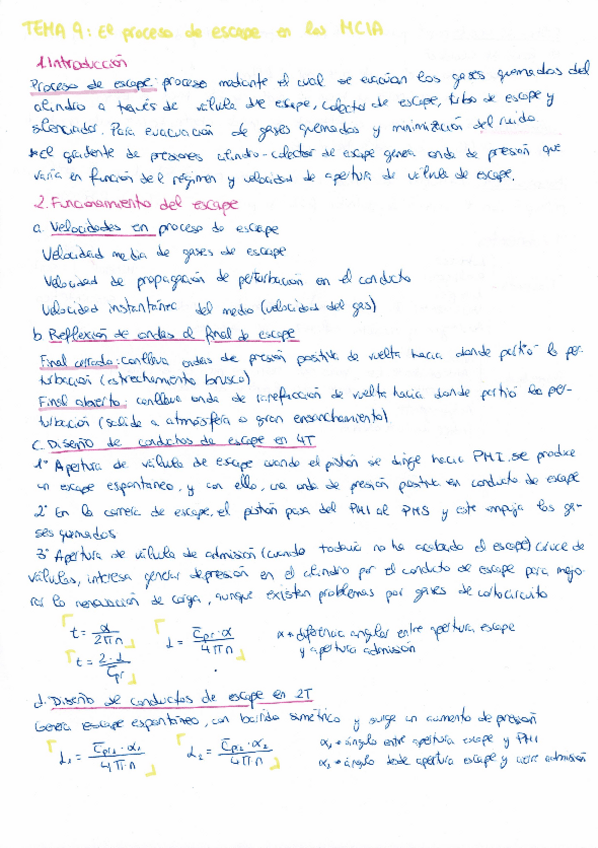 TEMA 9: El proceso de escape en los MCIA
1. Introducción
Proceso de escape: proceso mediante el cual se evacuan los gases quemados del
cilindro a través de válvula de escape, colector de escape, tubo de escape y
silenciador. Para evacuación de gases quemados y minimización del ruido
*el gradiente de presiones cilindro-colector de escape genera onda de presión que
varía en función del régimen y velocidad de apertura de válvula de escape.
2. Funcionamiento del escape
a. Velocidades en proceso de escape
Velocidad media de gases de escape
Velocidad de propagación de perturbación en el conducto
Velocidad instantánea del medio (velocidad del gas)
b. Reflexión de ondas al final de escape
Final cerrado: conlleva ondas de presión positiva de vuelta hacia donde partió la per-
turbación (estrechamiento brusco)
Final abierto: conlleva onda de rarefacción de vuelta hacia donde partió la per-
turbación (salida a atmósfera o gran ensanchamiento)
c. Diseño de conductos de escape en 4T
1º Apertura de válvula de escape cuando el pistón se dirige hacia PMI, se produce
un escape espontaneo, y con ello, una onda de presión positiva en conducto de escape
2º En la carrera de escape, el pistón pasa del PMI al PMS y este empuja los ga-
ses quemados
3º Apertura de válvula de admisión (cuando todavía no ha acabado el escape) cruce de
válvulas, interesa generar depresión en el cilindro por el conducto de escape para mejo-
rar la renovación de carga, aunque existen problemas por gases de cortocircuito
t = α / 2πn   L = c̄pr · α / 4πn   α → diferencia angular entre apertura escape
y apertura admisión
t = 2 · L / c̄pr
d. Diseño de conductos de escape en 2T
Genera escape espontáneo, con barrido simétrico y surge un aumento de presión
L₁ = c̄pr₁ · α₁ / 4πn   L₂ = c̄pr₂ · α₂ / 4πn   α₁ → ángulo entre apertura escape y PMI
α₂ → ángulo desde apertura escape y cierre admisión